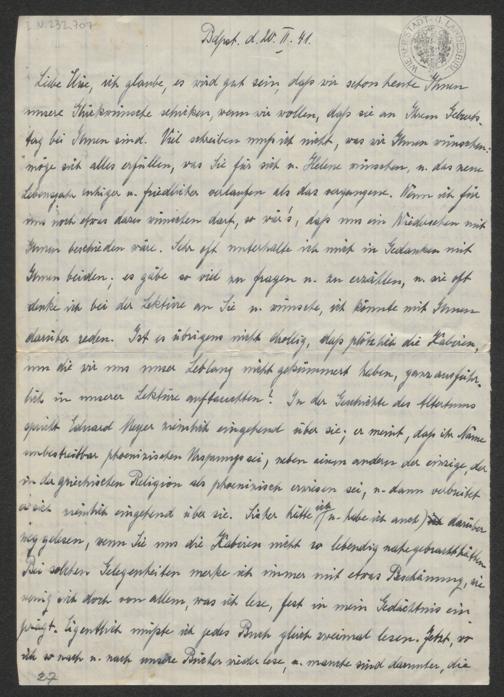 I.N. 232.707
WIENER STADT- U. LANDESBIBL.
Bdpst. d. 20. II. 41.
Liebe, ich glaube, es wird gut sein, daß wir schon heute Ihnen
unsere Glückwünsche schicken, wenn wir wollen, daß sie an Ihrem Geburts-
tag bei Ihnen sind. Viel schreiben muß ich nicht, was wir Ihnen wünschen:
möge sich alles erfüllen, was Sie für sich u. Helene wünschen, u. das neue
Lebensjahr ruhiger u. friedlicher verlaufen als das vergangene. Wenn ich für
uns noch etwas dazu wünschen darf, so wär's, daß uns ein Wiedersehen mit
Ihnen beschieden wäre. Sehr oft unterhalte ich mich in Gedanken mit
Ihnen beiden; es gäbe so viel zu fragen u. zu erzählen, u. wie oft
denke ich bei der Lektüre an Sie u. wünsche, ich könnte mit Ihnen
darüber reden. Ist es übrigens nicht drollig, daß plötzlich die Kabiren,
um die wir uns unser Leblang nicht gekümmert haben, ganz ausführ-
lich in unserer Lektüre auftauchten? In der Geschichte des Altertums
spricht Eduard Meyer nämlich eingehend über sie; er meint, daß ihr Name
unbestreitbar phoenizischen Ursprungs sei, neben einem andern der einzige, der
in der griechischen Religion als phoenizisch erwiesen sei, u. dann verbreitet
er sich nämlich eingehend über sie. Sicher hätte ich (u. habe ich auch) darüber
weggelesen, wenn Sie uns die Kabiren nicht so lebendig nahegebracht hätten.
Bei solchen Gelegenheiten merke ich immer mit etwas Beschämung, wie
wenig sich doch von allem, was ich lese, fest in mein Gedächtnis ein
prägt. Eigentlich müßte ich jedes Buch gleich zweimal lesen. Jetzt, wo
ich so nach u. nach unsere Bücher wieder lese, u. manche sind darunter, die
27